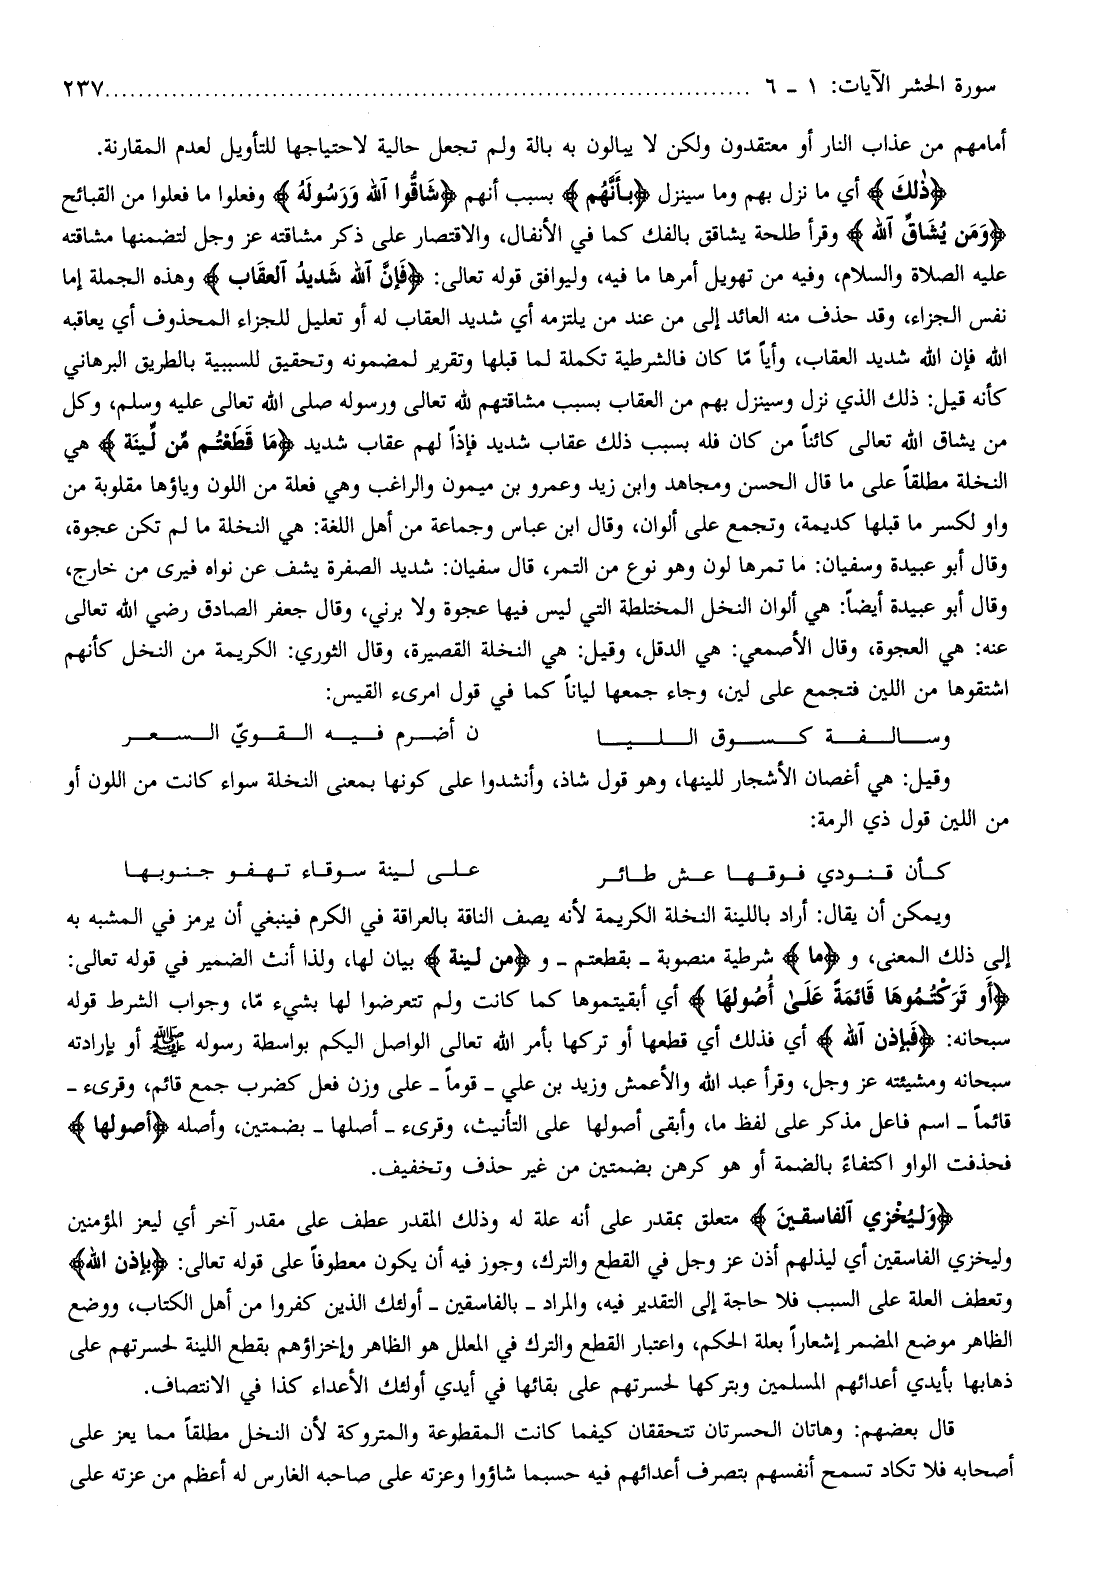 سورة الحشر الآيات: ١ ـ ٦ ........................................................................ ٢٣٧
أمامهم من عذاب النار أو معتقدون ولكن لا يبالون به بالة ولم تجعل حالية لاحتياجها للتأويل لعدم المقارنة.
﴿ذٰلكَ﴾ أي ما نزل بهم وما سينزل ﴿بأَنَّهُم﴾ بسبب أنهم ﴿شَاقُّوا آلله وَرَسُولَهُ﴾ وفعلوا ما فعلوا من القبائح
﴿وَمَن يُشَاقِّ آلله﴾ وقرأ طلحة يشاقق بالفك كما في الأنفال، والاقتصار على ذكر مشاقته عز وجل لتضمنها مشاقته
عليه الصلاة والسلام، وفيه من تهويل أمرها ما فيه، وليوافق قوله تعالى: ﴿فَإنَّ آلله شَديدُ آلعقَاب﴾ وهذه الجملة إما
نفس الجزاء، وقد حذف منه العائد إلى من عند من يلتزمه أي شديد العقاب له أو تعليل للجزاء المحذوف أي يعاقبه
الله فإن الله شديد العقاب، وأياً مّا كان فالشرطية تكملة لما قبلها وتقرير لمضمونه وتحقيق للسببية بالطريق البرهاني
كأنه قيل: ذلك الذي نزل وسينزل بهم من العقاب بسبب مشاقتهم لله تعالى ورسوله صلى الله تعالى عليه وسلم، وكل
من يشاق الله تعالى كائناً من كان فله بسبب ذلك عقاب شديد فإذاً لهم عقاب شديد ﴿مَا قَطَعْتُم مِّن لِّينَة﴾ هي
النخلة مطلقاً على ما قال الحسن ومجاهد وابن زيد وعمرو بن ميمون والراغب وهي فعلة من اللون وياؤها مقلوبة من
واو لكسر ما قبلها كديمة، وتجمع على ألوان، وقال ابن عباس وجماعة من أهل اللغة: هي النخلة ما لم تكن عجوة،
وقال أبو عبيدة وسفيان: ما تمرها لون وهو نوع من التمر، قال سفيان: شديد الصفرة يشف عن نواه فيرى من خارج،
وقال أبو عبيدة أيضاً: هي ألوان النخل المختلطة التي ليس فيها عجوة ولا برني، وقال جعفر الصادق رضي الله تعالى
عنه: هي العجوة، وقال الأصمعي: هي الدقل، وقيل: هي النخلة القصيرة، وقال الثوري: الكريمة من النخل كأنهم
اشتقوها من اللين فتجمع على لين، وجاء جمعها لياناً كما في قول امرىء القيس:
وسالفة كسوق الليا ن أضرم فيه القويّ السعر
وقيل: هي أغصان الأشجار للينها، وهو قول شاذ، وأنشدوا على كونها بمعنى النخلة سواء كانت من اللون أو
من اللين قول ذي الرمة:
كأن قنودي فوقها عش طائر على لينة سوقاء تهفو جنوبها
ويمكن أن يقال: أراد باللينة النخلة الكريمة لأنه يصف الناقة بالعراقة في الكرم فينبغي أن يرمز في المشبه به
إلى ذلك المعنى، و ﴿ما﴾ شرطية منصوبة ـ بقطعتم ـ و ﴿من لينة﴾ بيان لها، ولذا أنث الضمير في قوله تعالى:
﴿أَو تَرَكْتُمُوهَا قَائمَةً عَلَىٰ أُصُولهَا﴾ أي أبقيتموها كما كانت ولم تتعرضوا لها بشيء مّا، وجواب الشرط قوله
سبحانه: ﴿فَبإذن آلله﴾ أي فذلك أي قطعها أو تركها بأمر الله تعالى الواصل اليكم بواسطة رسوله ﷺ أو بإرادته
سبحانه ومشيئته عز وجل، وقرأ عبد الله والأعمش وزيد بن علي ـ قوماً ـ على وزن فعل كضرب جمع قائم، وقرىء ـ
قائماً ـ اسم فاعل مذكر على لفظ ما، وأبقى أصولها على التأنيث، وقرىء ـ أصلها ـ بضمتين، وأصله ﴿أصولها﴾
فحذفت الواو اكتفاءً بالضمة أو هو كرهن بضمتين من غير حذف وتخفيف.
﴿وَليُخْزي آلفاسقينَ﴾ متعلق بمقدر على أنه علة له وذلك المقدر عطف على مقدر آخر أي ليعز المؤمنين
وليخزي الفاسقين أي ليذلهم أذن عز وجل في القطع والترك، وجوز فيه أن يكون معطوفاً على قوله تعالى: ﴿بإذن الله﴾
وتعطف العلة على السبب فلا حاجة إلى التقدير فيه، والمراد ـ بالفاسقين ـ أولئك الذين كفروا من أهل الكتاب، ووضع
الظاهر موضع المضمر إشعاراً بعلة الحكم، واعتبار القطع والترك في المعلل هو الظاهر وإخزاؤهم بقطع اللينة لحسرتهم على
ذهابها بأيدي أعدائهم المسلمين وبتركها لحسرتهم على بقائها في أيدي أولئك الأعداء كذا في الانتصاف.
قال بعضهم: وهاتان الحسرتان تتحققان كيفما كانت المقطوعة والمتروكة لأن النخل مطلقاً مما يعز على
أصحابه فلا تكاد تسمح أنفسهم بتصرف أعدائهم فيه حسبما شاؤوا وعزته على صاحبه الغارس له أعظم من عزته على